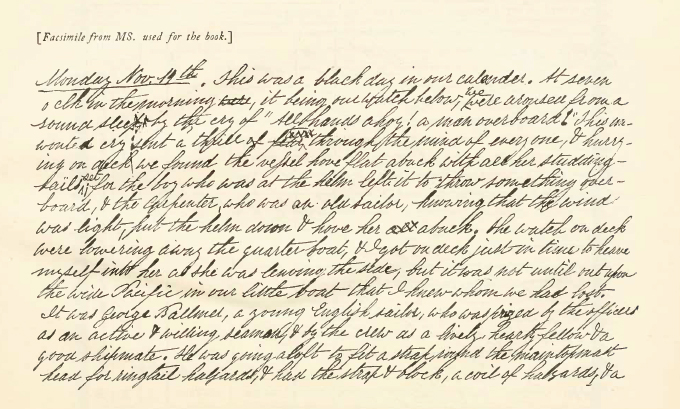 [Facsimile from MS. used for the book.]
Monday Nov. 19th. This was a black day in our calender. At seven
o clk in the morning, it being our watch below, we were aroused from a
sound sleep by the cry of "All hands ahoy! a man overboard!" This un-
wonted cry sent a thrill through the mind of every one, & hurry-
ing on deck we found the vessel hove flat aback with all her studding-
sails set, for the boy who was at the helm left it to throw something over-
board, & the Carpenter, who was an old sailor, knowing that the wind
was light, put the helm down & hove her aback. The watch on deck
were lowering away the quarter boat, & I got on deck just in time to heave
myself into her as she was leaving the side, but it was not until out upon
the wide Pacific in our little boat that I knew whom we had lost.
It was George Ballmer, a young English sailor, who was prized by the officers
as an active & willing seaman, & by the crew as a lively, hearty fellow & a
good shipmate. He was going aloft to fit a strap round the main top mast
head for ringtail halyards, & had the strap & block, a coil of halyards, & a